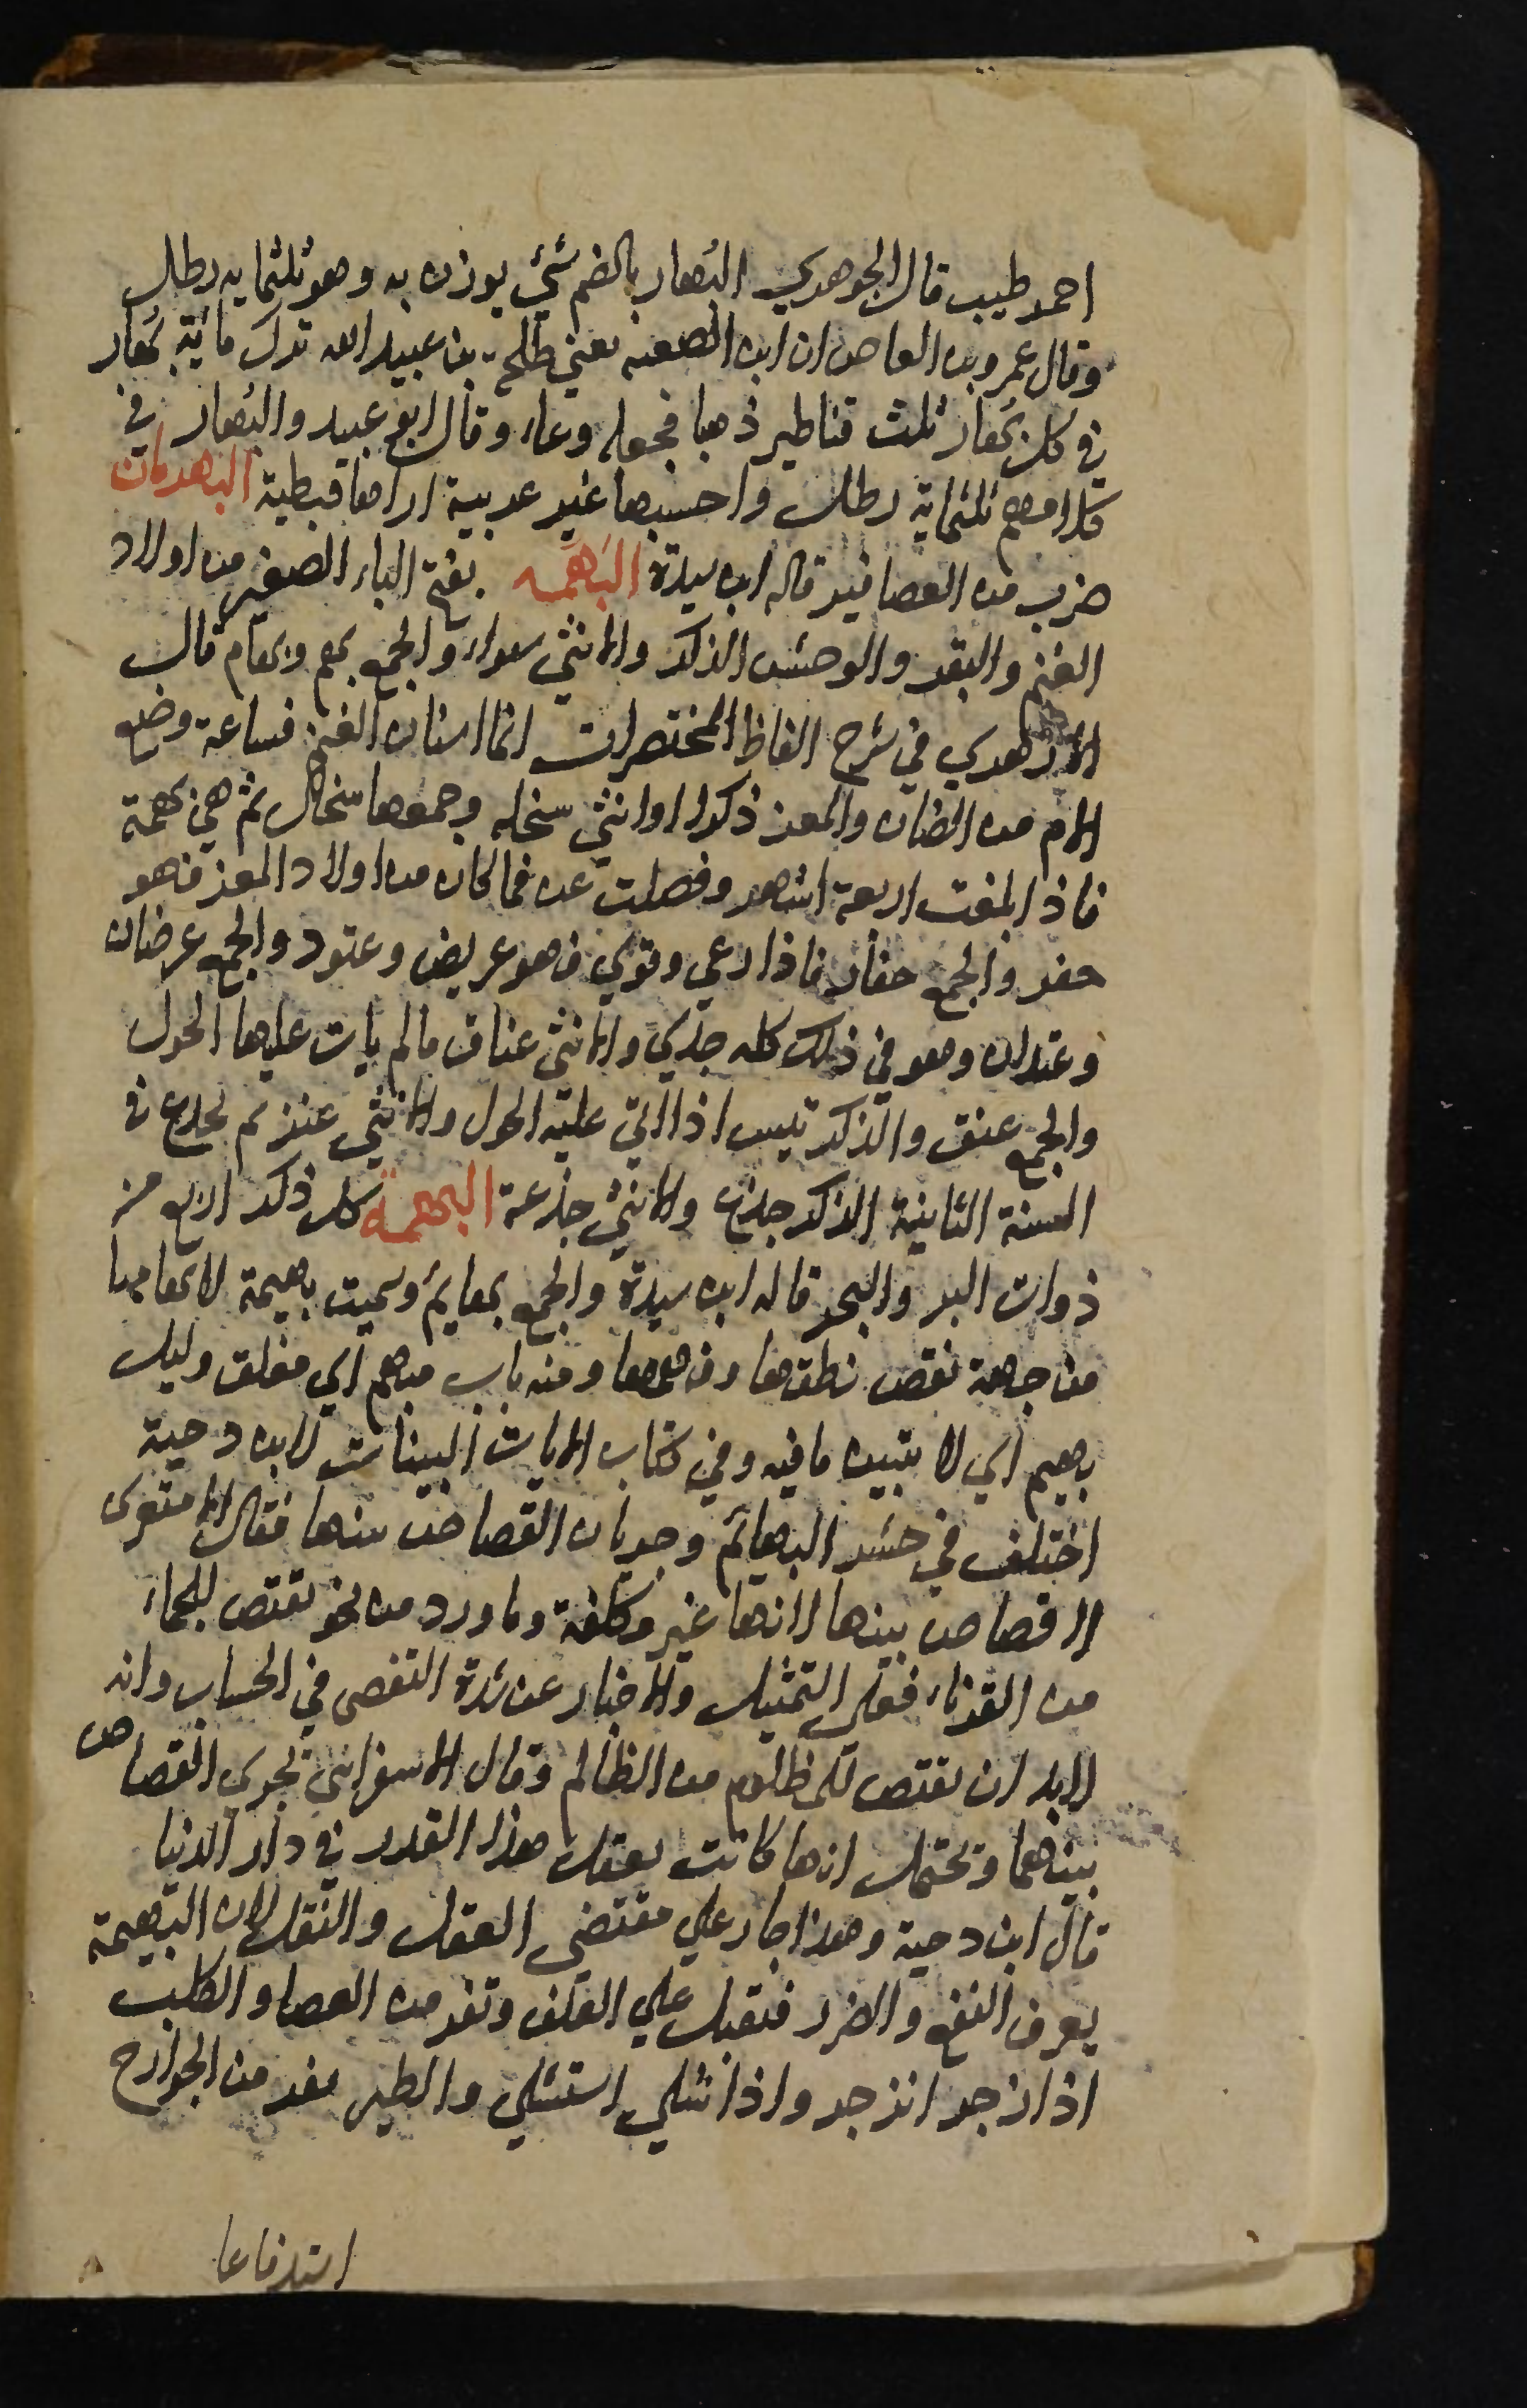 احمد طيب قال الجوهري البُهار بالضم شئي يوزن به وهو ثلثمايه رطل
وقال عمرو بن العاص ان ابن الصعبه يعني طلحة بن عبيد الله ترك ماية بُهار
في كل بُهار ثلث قناطير ذهبا فجعله وعاء وقال ابو عبيد والبُهار في
كلامهم ثلثماية رطل واحسبها غير عربية اراها قبطية البهرمان
ضرب من العصافير قاله ابن سيدة البَهَمه بفتح الباء الصغير من اولاد
الغنم والبقر والوحش الذكر والانثي سواء والجمع بهم وبهام قال
الازهري في شرح الفاظ المختصرات انما اسنان الغنم فساعة وضع
الام من الضان والمعز ذكرا او انثي سخله وجمعها سخال ثم هي بهمة
فاذا بلغت اربعة اشهر وفصلت عن فما كان من اولاد المعز فهو
حفر والجمع حفار فاذا رعي وقوي فهو عريض وعتود والجمع عرضان
وعتدان وهو في ذلك كله جدي والانثي عناق ما لم يات عليها الحول
والجمع عنق والذكر تيس اذا اتي عليه الحول والانثي عنز ثم يجذع في
السنة الثانية الذكر جذع والانثي جذعة البهيمة كل ذكر اربع من
ذوات البر والبحر قاله ابن سيدة والجمع بهايم وسميت بهيمة لابهامها
من جهة نقص نطقها وفهمها ومنه باب مبهم اي مغلق وليل
بهيم اي لا يتبين ما فيه وفي كتاب الايات البينات لابن دحية
اختلف في حشر البهائم وجريان القصاص بينها فقال الاشعري
لا قصاص بينها لانها غير مكلفة وما ورد من نحو يقتص للجماء
من القرناء فعلي التمثيل والاخبار عن شدة التقصي في الحساب وانه
لابد ان يقتص للمظلوم من الظالم وقال الاسفرايني يجري القصاص
بينهما ويحتمل انها كانت يعقل هذا القدر في دار الدنيا
قال ابن دحية وهذا جار علي مقتضي العقل والنقل لان البهيمة
يعرف النفع والضرر فتقبل علي العلف وتفر من العصا والكلب
اذا زجر انزجر واذا شلي استشلي والطير يفر من الجوارح
استدفاعا